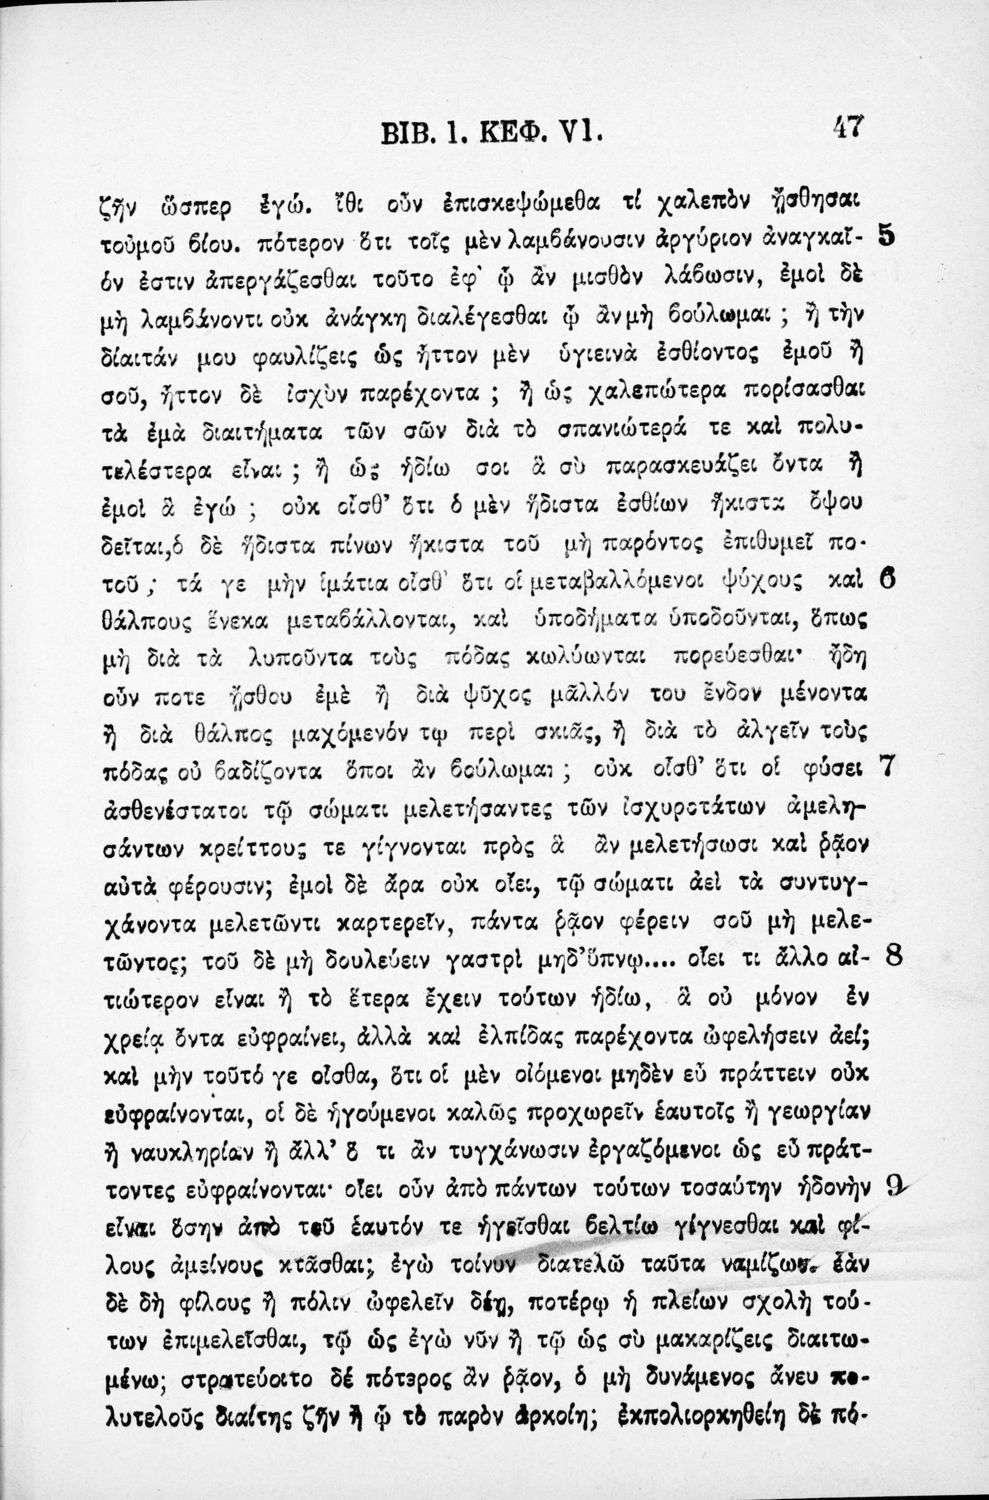 ΒΙΒ. 1. ΚΕΦ. VI. 47
ζῆν ὥσπερ ἐγώ. ἴθι οὖν ἐπισκεψώμεθα τί χαλεπὸν ᾔσθησαι
τοὐμοῦ βίου. πότερον ὅτι τοῖς μὲν λαμβάνουσιν ἀργύριον ἀναγκαῖ- 5
όν ἐστιν ἀπεργάζεσθαι τοῦτο ἐφ' ᾧ ἂν μισθὸν λάβωσιν, ἐμοὶ δὲ
μὴ λαμβάνοντι οὐκ ἀνάγκη διαλέγεσθαι ᾧ ἂν μὴ βούλωμαι ; ἢ τὴν
δίαιτάν μου φαυλίζεις ὡς ἧττον μὲν ὑγιεινὰ ἐσθίοντος ἐμοῦ ἢ
σοῦ, ἧττον δὲ ἰσχὺν παρέχοντα ; ἢ ὡς χαλεπώτερα πορίσασθαι
τὰ ἐμὰ διαιτήματα τῶν σῶν διὰ τὸ σπανιώτερά τε καὶ πολυ-
τελέστερα εἶναι ; ἢ ὡς ἡδίω σοι ἃ σὺ παρασκευάζει ὄντα ἢ
ἐμοὶ ἃ ἐγώ ; οὐκ οἶσθ' ὅτι ὁ μὲν ἥδιστα ἐσθίων ἥκιστα ὄψου
δεῖται,ὁ δὲ ἥδιστα πίνων ἥκιστα τοῦ μὴ παρόντος ἐπιθυμεῖ πο-
τοῦ ; τά γε μὴν ἱμάτια οἶσθ' ὅτι οἱ μεταβαλλόμενοι ψύχους καὶ 6
θάλπους ἕνεκα μεταβάλλονται, καὶ ὑποδήματα ὑποδοῦνται, ὅπως
μὴ διὰ τὰ λυποῦντα τοὺς πόδας κωλύωνται πορεύεσθαι· ἤδη
οὖν ποτε ᾔσθου ἐμὲ ἢ διὰ ψῦχος μᾶλλόν του ἔνδον μένοντα
ἢ διὰ θάλπος μαχόμενόν τῳ περὶ σκιᾶς, ἢ διὰ τὸ ἀλγεῖν τοὺς
πόδας οὐ βαδίζοντα ὅποι ἂν βούλωμαι ; οὐκ οἶσθ' ὅτι οἱ φύσει 7
ἀσθενέστατοι τῷ σώματι μελετήσαντες τῶν ἰσχυροτάτων ἀμελη-
σάντων κρείττους τε γίγνονται πρὸς ἃ ἂν μελετήσωσι καὶ ῥᾷον
αὐτὰ φέρουσιν; ἐμοὶ δὲ ἄρα οὐκ οἴει, τῷ σώματι ἀεὶ τὰ συντυγ-
χάνοντα μελετῶντι καρτερεῖν, πάντα ῥᾷον φέρειν σοῦ μὴ μελε-
τῶντος; τοῦ δὲ μὴ δουλεύειν γαστρὶ μηδ'ὕπνῳ.... οἴει τι ἄλλο αἰ- 8
τιώτερον εἶναι ἢ τὸ ἕτερα ἔχειν τούτων ἡδίω, ἃ οὐ μόνον ἐν
χρείᾳ ὄντα εὐφραίνει, ἀλλὰ καὶ ἐλπίδας παρέχοντα ὠφελήσειν ἀεί;
καὶ μὴν τοῦτό γε οἶσθα, ὅτι οἱ μὲν οἰόμενοι μηδὲν εὖ πράττειν οὐκ
εὐφραίνονται, οἱ δὲ ἡγούμενοι καλῶς προχωρεῖν ἑαυτοῖς ἢ γεωργίαν
ἢ ναυκληρίαν ἢ ἄλλ' ὅ τι ἂν τυγχάνωσιν ἐργαζόμενοι ὡς εὖ πράτ-
τοντες εὐφραίνονται· οἴει οὖν ἀπὸ πάντων τούτων τοσαύτην ἡδονὴν 9
εἶναι ὅσην ἀπὸ τοῦ ἑαυτόν τε ἡγεῖσθαι βελτίω γίγνεσθαι καὶ φί-
λους ἀμείνους κτᾶσθαι; ἐγὼ τοίνυν διατελῶ ταῦτα νομίζων. ἐὰν
δὲ δὴ φίλους ἢ πόλιν ὠφελεῖν δέῃ, ποτέρῳ ἡ πλείων σχολὴ τού-
των ἐπιμελεῖσθαι, τῷ ὡς ἐγὼ νῦν ἢ τῷ ὡς σὺ μακαρίζεις διαιτω-
μένω; στρατεύοιτο δέ πότερος ἂν ῥᾷον, ὁ μὴ δυνάμενος ἄνευ πο-
λυτελοῦς διαίτης ζῆν ἢ ᾧ τὸ παρὸν ἀρκοίη; ἐκπολιορκηθείη δὲ πό-